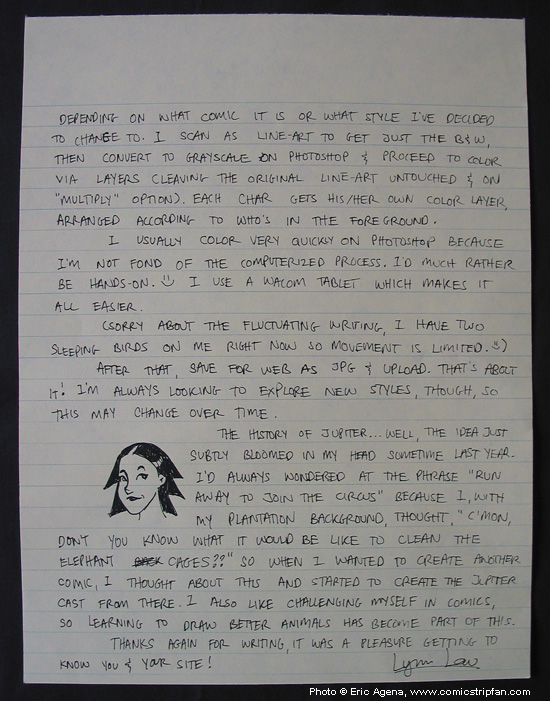 DEPENDING ON WHAT COMIC IT IS OR WHAT STYLE I'VE DECIDED
TO CHANGE TO. I SCAN AS LINE-ART TO GET JUST THE B&W,
THEN CONVERT TO GRAYSCALE ON PHOTOSHOP & PROCEED TO COLOR
VIA LAYERS (LEAVING THE ORIGINAL LINE-ART UNTOUCHED & ON
"MULTIPLY" OPTION). EACH CHAR GETS HIS/HER OWN COLOR LAYER,
ARRANGED ACCORDING TO WHO'S IN THE FOREGROUND.
I USUALLY COLOR VERY QUICKLY ON PHOTOSHOP BECAUSE
I'M NOT FOND OF THE COMPUTERIZED PROCESS. I'D MUCH RATHER
BE HANDS-ON. I USE A WACOM TABLET WHICH MAKES IT
ALL EASIER.
(SORRY ABOUT THE FLUCTUATING WRITING, I HAVE TWO
SLEEPING BIRDS ON ME RIGHT NOW SO MOVEMENT IS LIMITED. :))
AFTER THAT, SAVE FOR WEB AS JPG & UPLOAD. THAT'S ABOUT
IT! I'M ALWAYS LOOKING TO EXPLORE NEW STYLES, THOUGH, SO
THIS MAY CHANGE OVER TIME.
THE HISTORY OF JUPITER... WELL, THE IDEA JUST
SUBTLY BLOOMED IN MY HEAD SOMETIME LAST YEAR.
I'D ALWAYS WONDERED AT THE PHRASE "RUN
AWAY TO JOIN THE CIRCUS" BECAUSE I, WITH
MY PLANTATION BACKGROUND, THOUGHT, "C'MON,
DON'T YOU KNOW WHAT IT WOULD BE LIKE TO CLEAN THE
ELEPHANT CAGES??" SO WHEN I WANTED TO CREATE ANOTHER
COMIC, I THOUGHT ABOUT THIS AND STARTED TO CREATE THE JUPITER
CAST FROM THERE. I ALSO LIKE CHALLENGING MYSELF IN COMICS,
SO LEARNING TO DRAW BETTER ANIMALS HAS BECOME PART OF THIS.
THANKS AGAIN FOR WRITING, IT WAS A PLEASURE GETTING TO
KNOW YOU & YOUR SITE! Lynn Lau
Photo © Eric Agena, www.comicstripfan.com